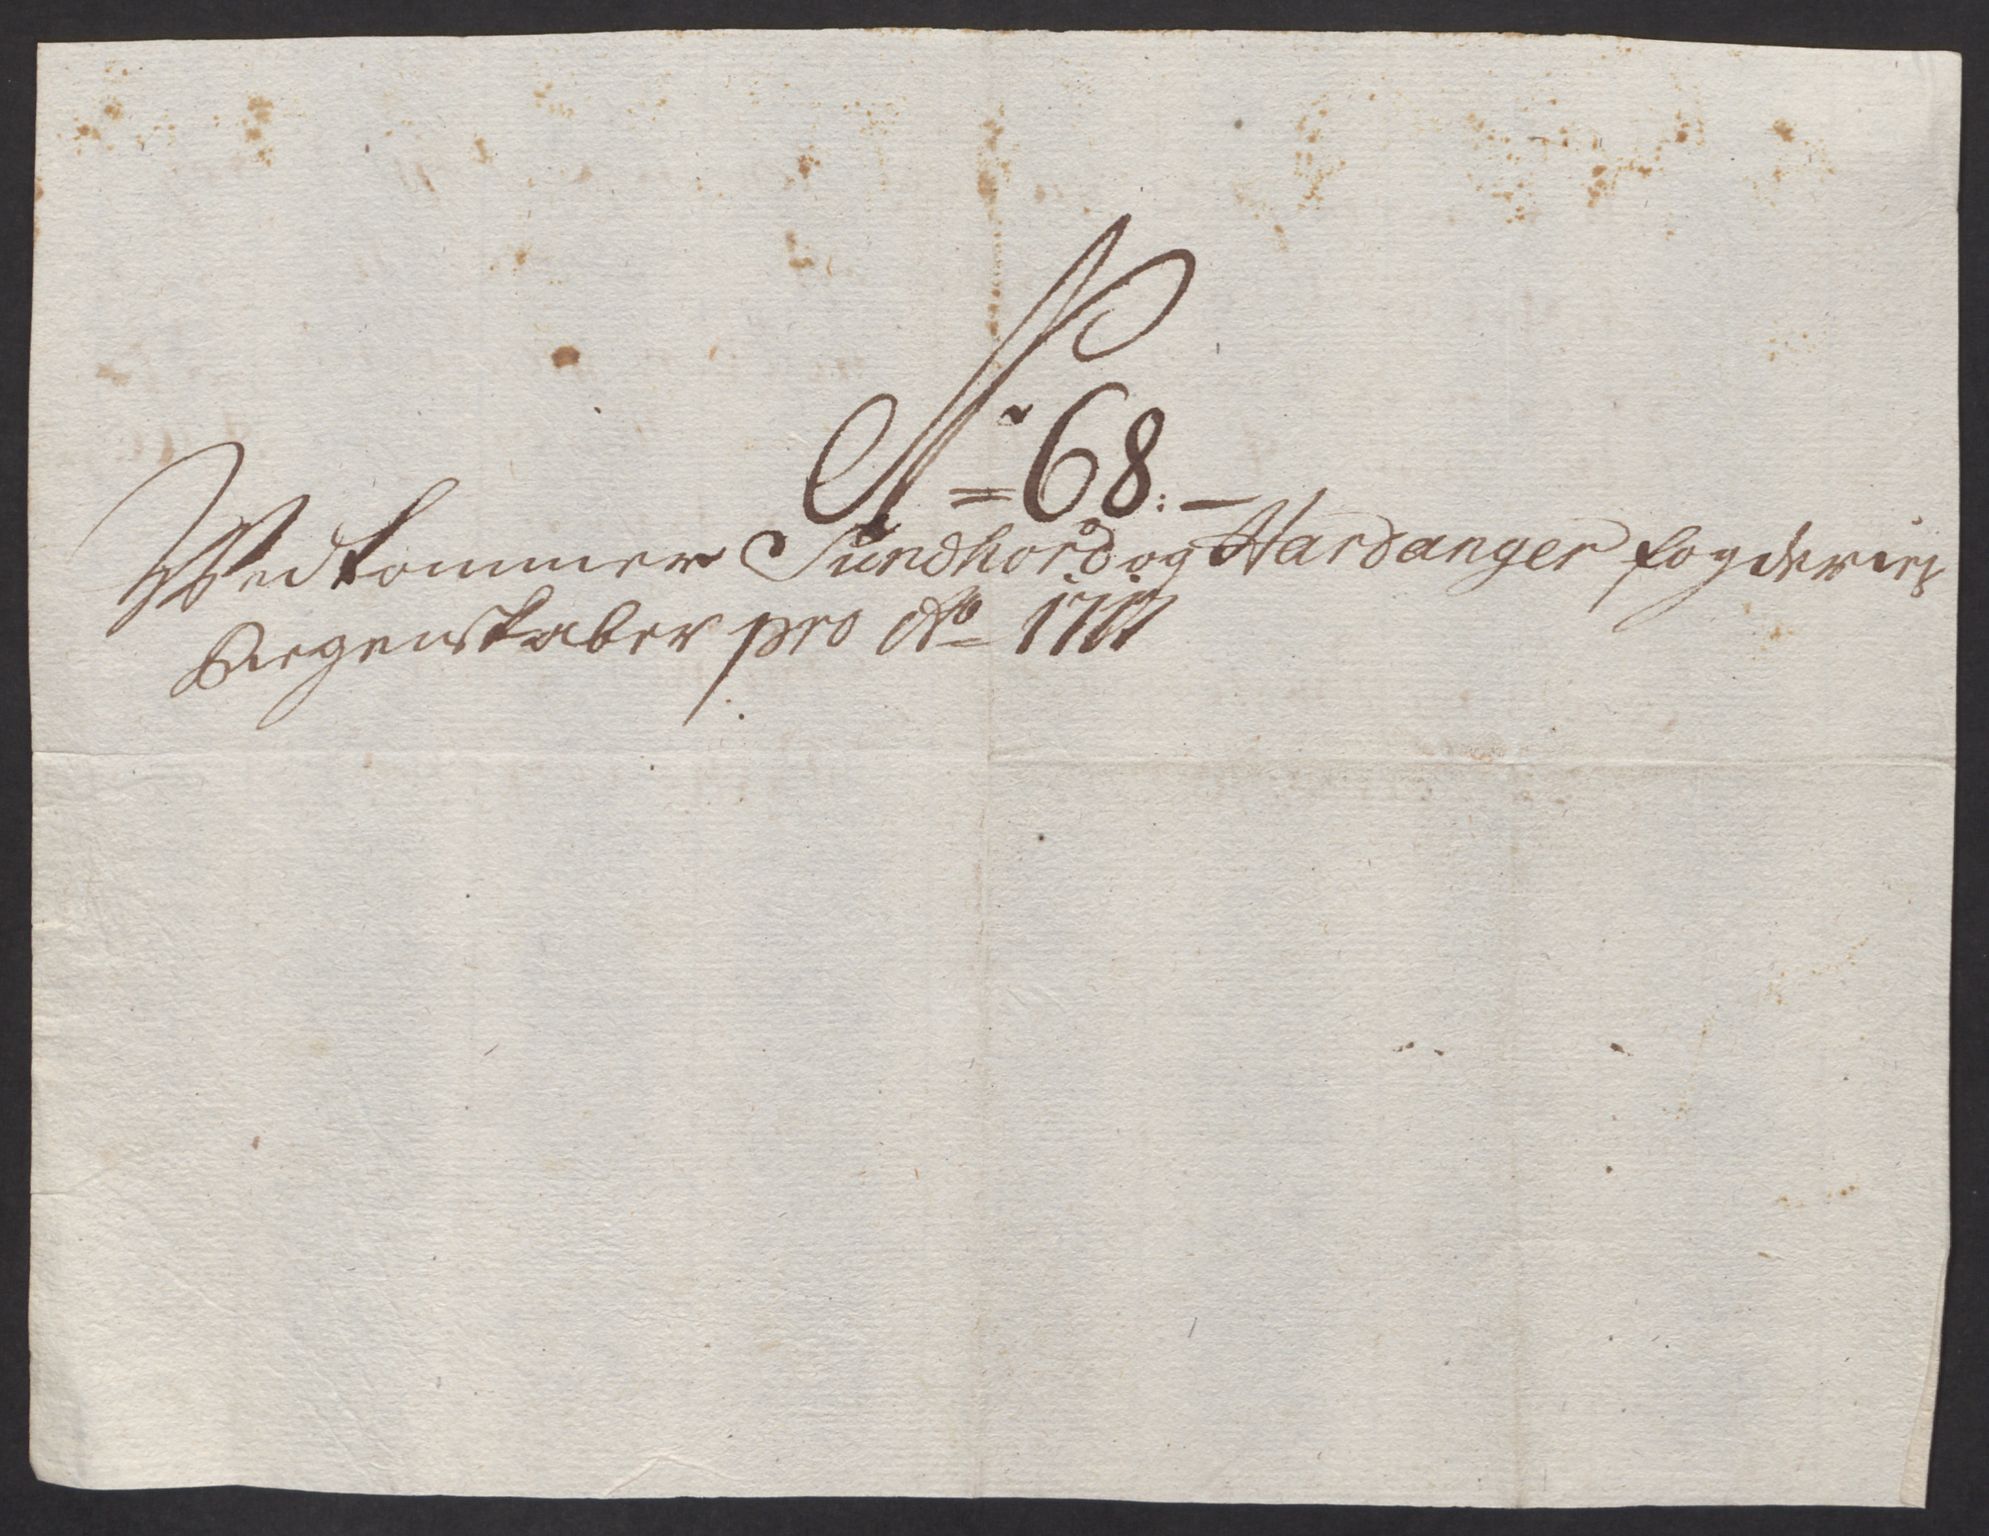 No 68.
Vedkommer Sundhord og Hardanger fogderies
Regenskaber pro Ao 1717